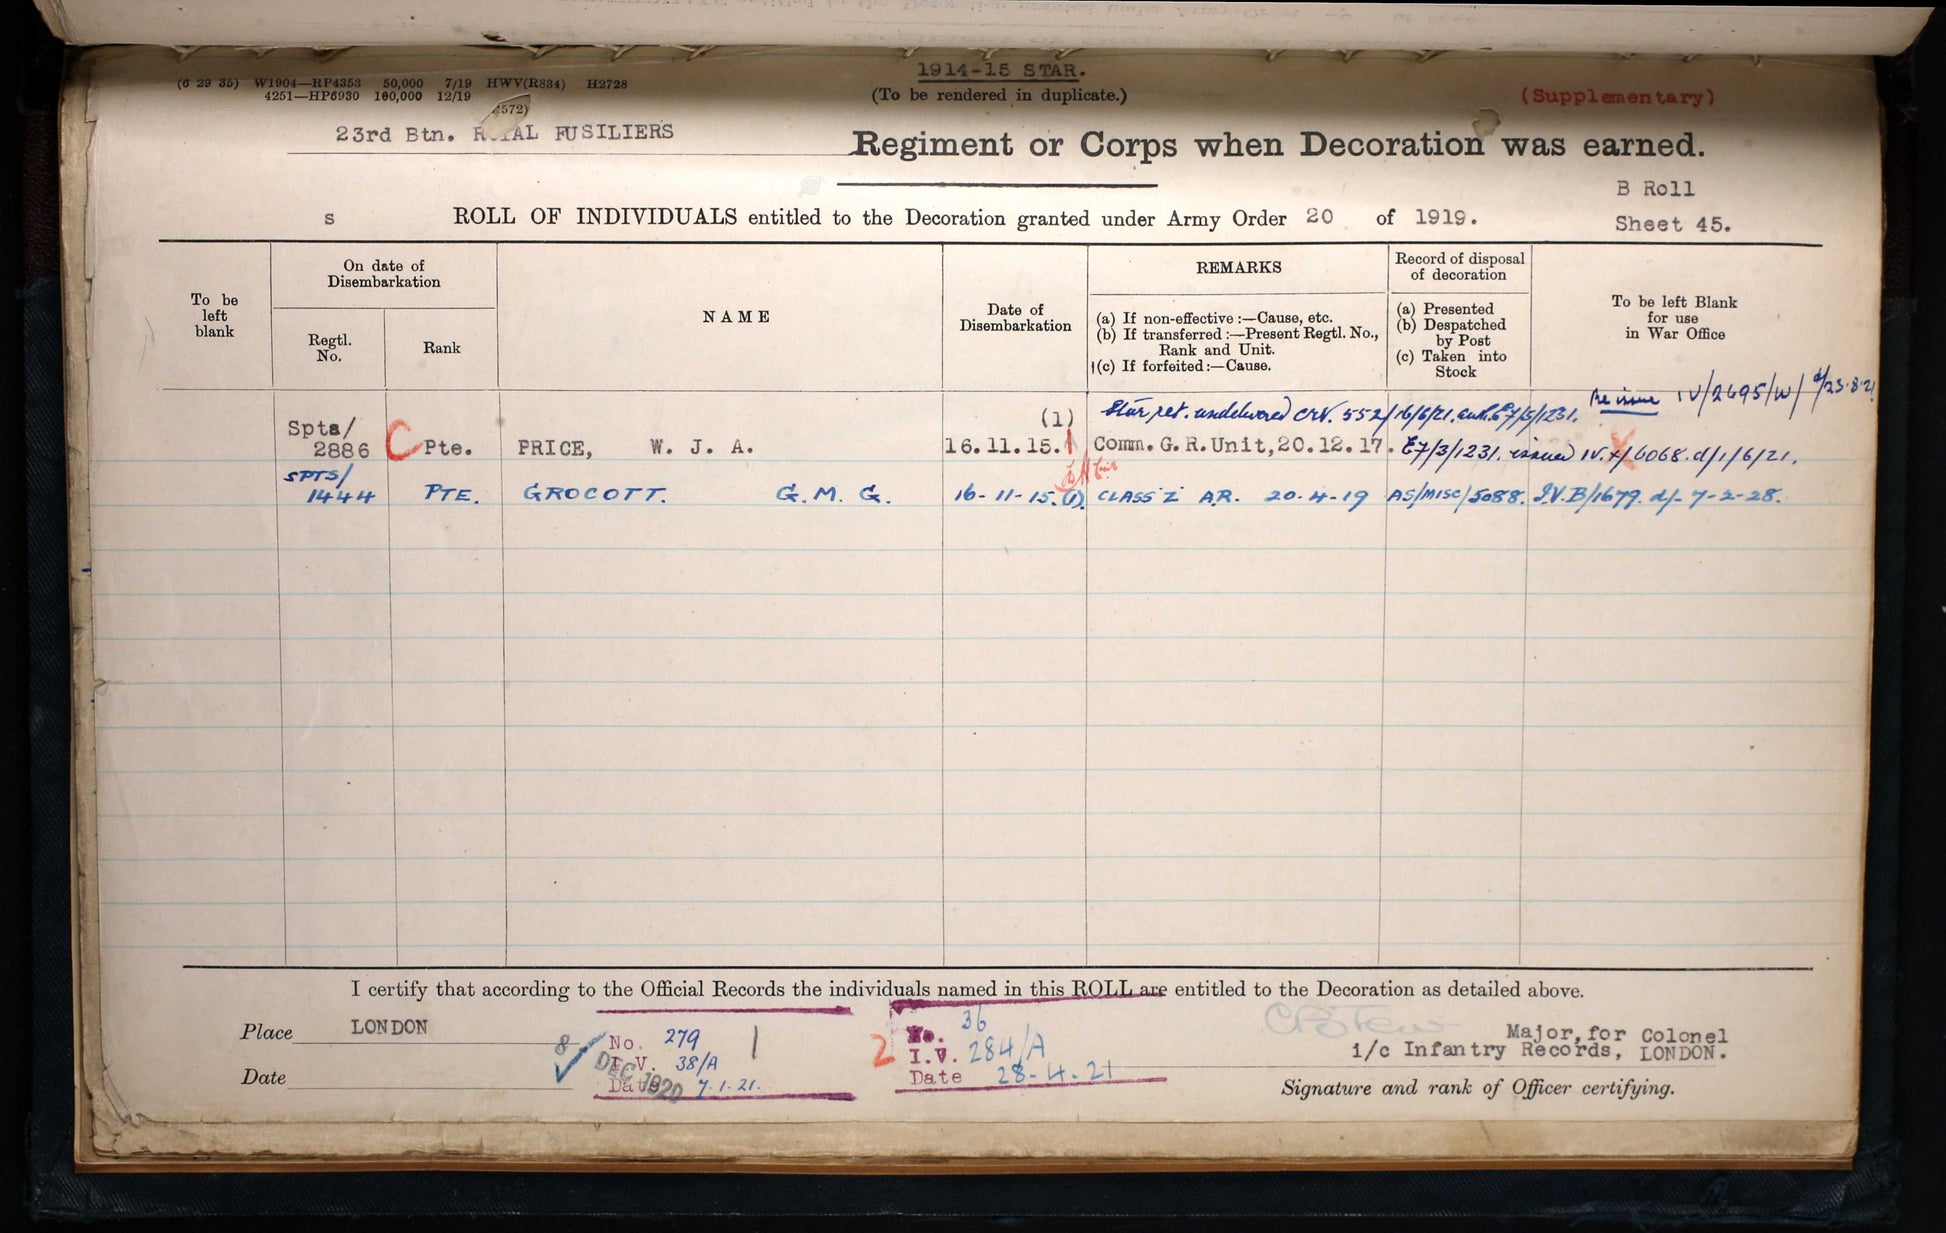 1914-15 STAR.
(6 29 35) W1904—RP4353 50,000 7/19 HWV(R834) H2728
(To be rendered in duplicate.)
(Supplementary)
4251—HP6930 100,000 12/19
23rd Btn. ROYAL FUSILIERS
Regiment or Corps when Decoration was earned.
B Roll
S ROLL OF INDIVIDUALS entitled to the Decoration granted under Army Order 20 of 1919.
Sheet 45.
To be left blank
On date of Disembarkation
Regtl. No.
Rank
NAME
Date of Disembarkation
REMARKS
(a) If non-effective :—Cause, etc.
(b) If transferred :—Present Regtl. No., Rank and Unit.
(c) If forfeited :—Cause.
Record of disposal of decoration
(a) Presented
(b) Despatched by Post
(c) Taken into Stock
To be left Blank for use in War Office
Re issue IV/2695/W/ d/23.8.21
(1) Star ret. undelivered CRV. 552/16/6/21. auth. E7/3/1231.
Spts/
2886 C Pte. PRICE, W. J. A. 16.11.15. Comm. G. R. Unit, 20.12.17. E7/3/1231. issued IV. 6068. d/1/6/21.
SPTS/
1444 PTE. GROCOTT. G. M. G. 16-11-15. (1). CLASS Z AR. 20-4-19 AS/MISC/5088. I.V.B/1679. d/- 7-2-28.
I certify that according to the Official Records the individuals named in this ROLL are entitled to the Decoration as detailed above.
Place LONDON
Date
8 DEC 1920
No. 279 1
I.V. 38/A
Date 7.1.21.
2 No. 36
I.V. 284/A
Date 28-4-21
Major, for Colonel
i/c Infantry Records, LONDON.
Signature and rank of Officer certifying.